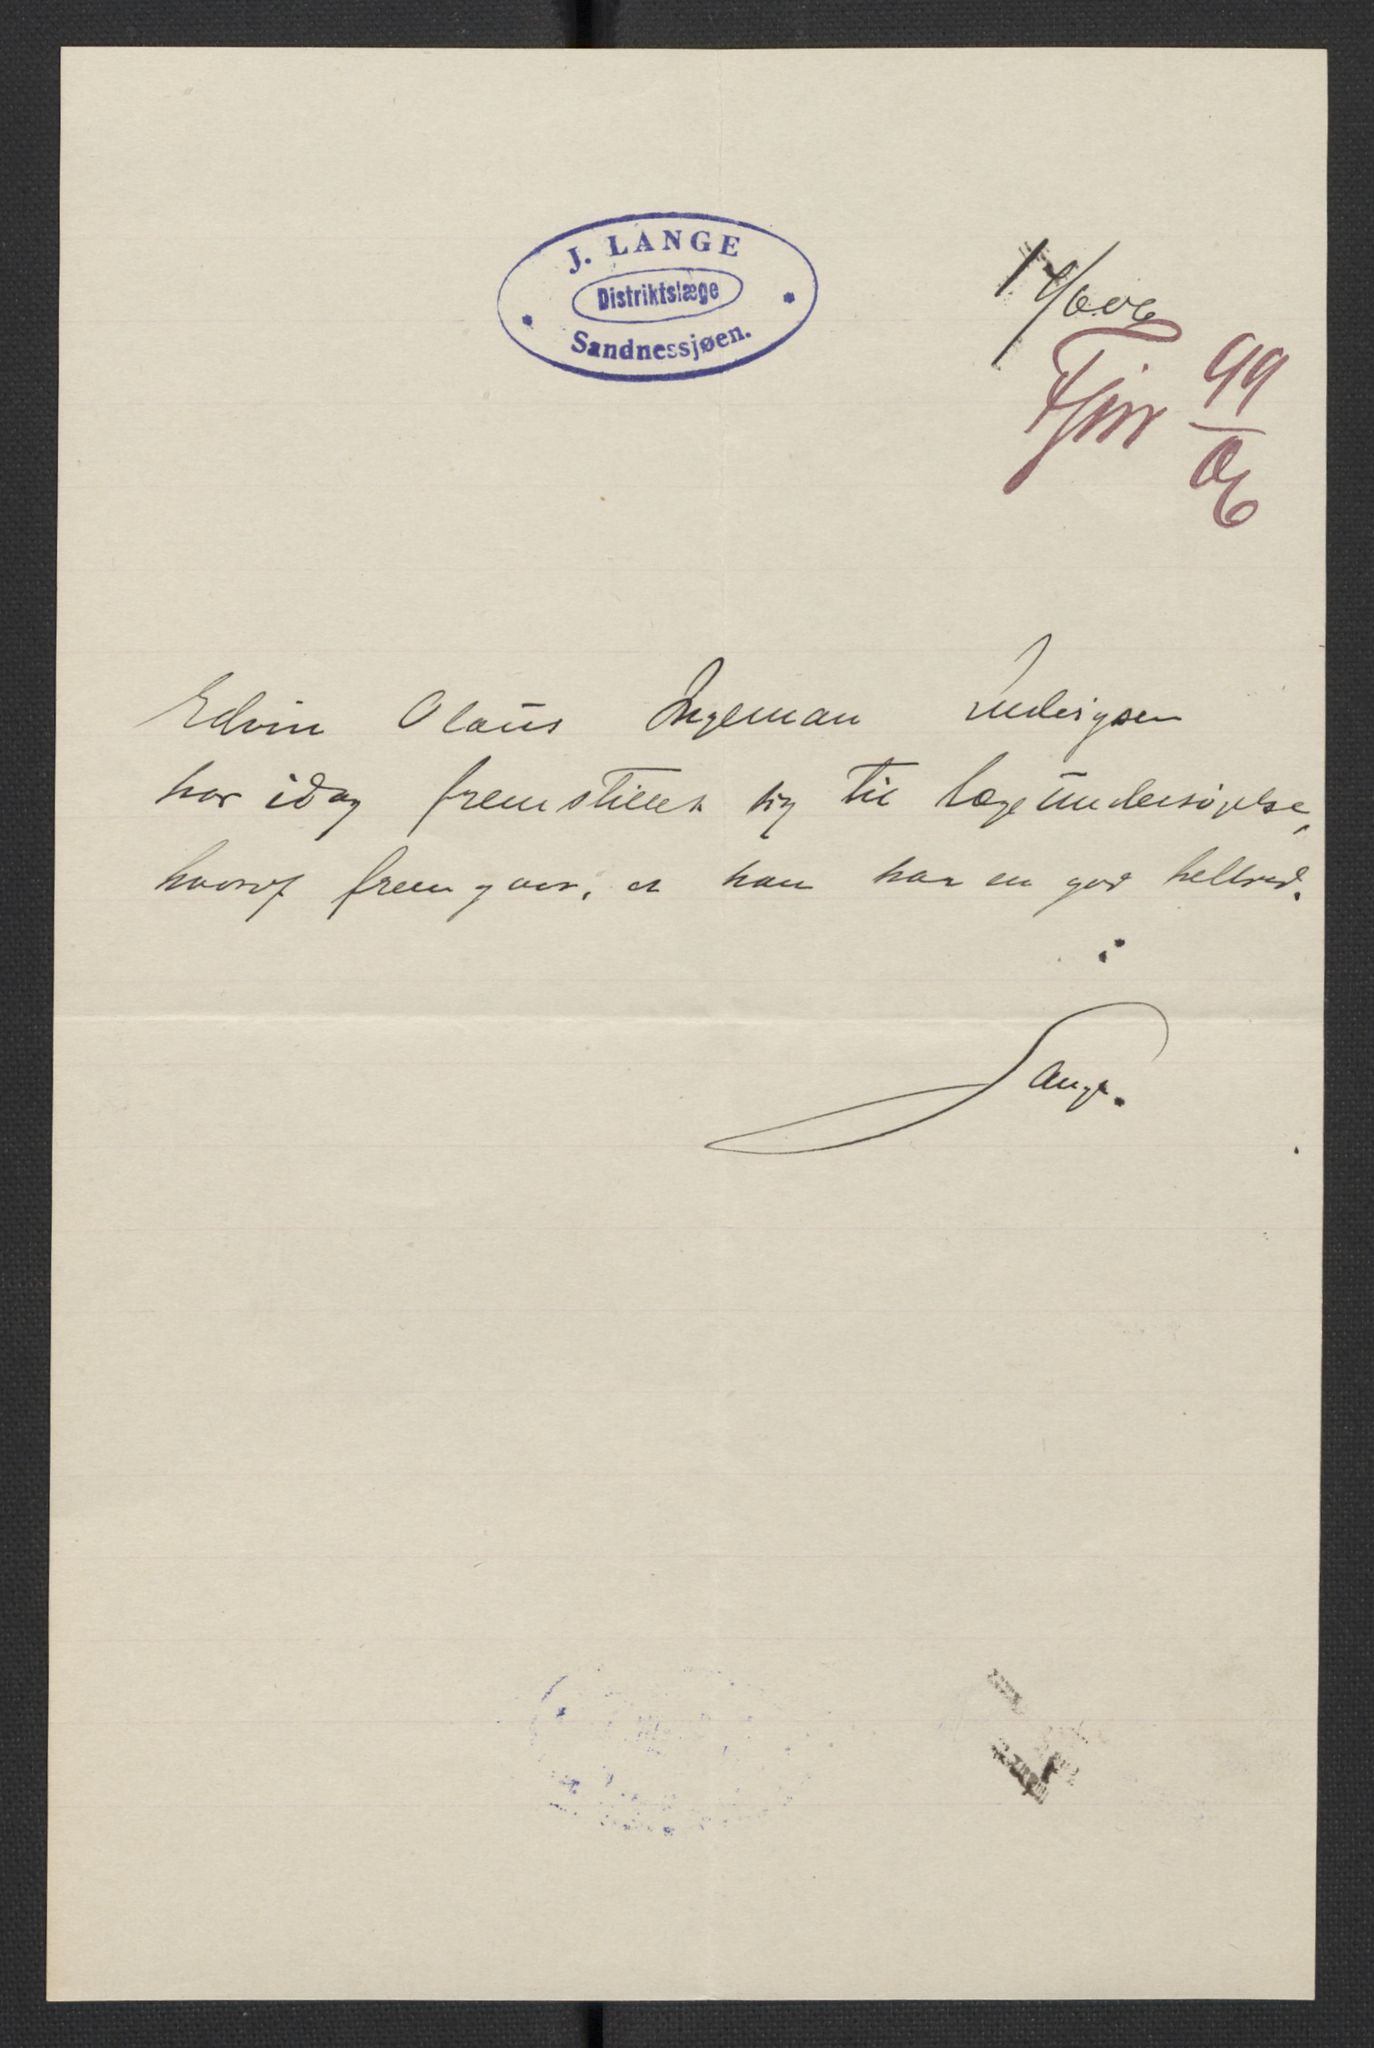 J. LANGE
Distriktslæge
Sandnessjøen.
Fjm 99
06
Edvin Olaus Ingeman Ludvigsen
har idag fremstillet sig til lægeundersøgelse,
hvoraf fremgaar, at han har en god helbred.
Lange.